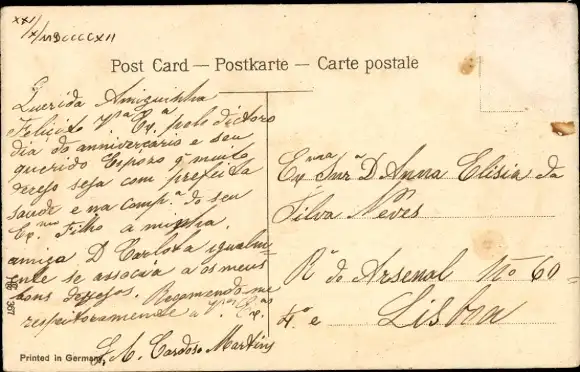 XXI/X/MDCCCCXII
Post Card — Postkarte — Carte postale
Querida Amiguinha
Felicito Vª Exª pelo dictoro
dia do anniversario e seu
querido Espozo q muito
dezejo seja com prefeita
saude e na compª do seu
Exmo Filho a minha
amiga D Carlota igualm-
ente se associa a os meus
bons dezejos. Recomendo-me
respeitosamente a Vªs Exªs
Cardoso Martins
Exma Snrª D Anna Elisia da
Silva Neves
Rª do Arsenal Nº 60-
4º e Lisboa
Printed in Germany